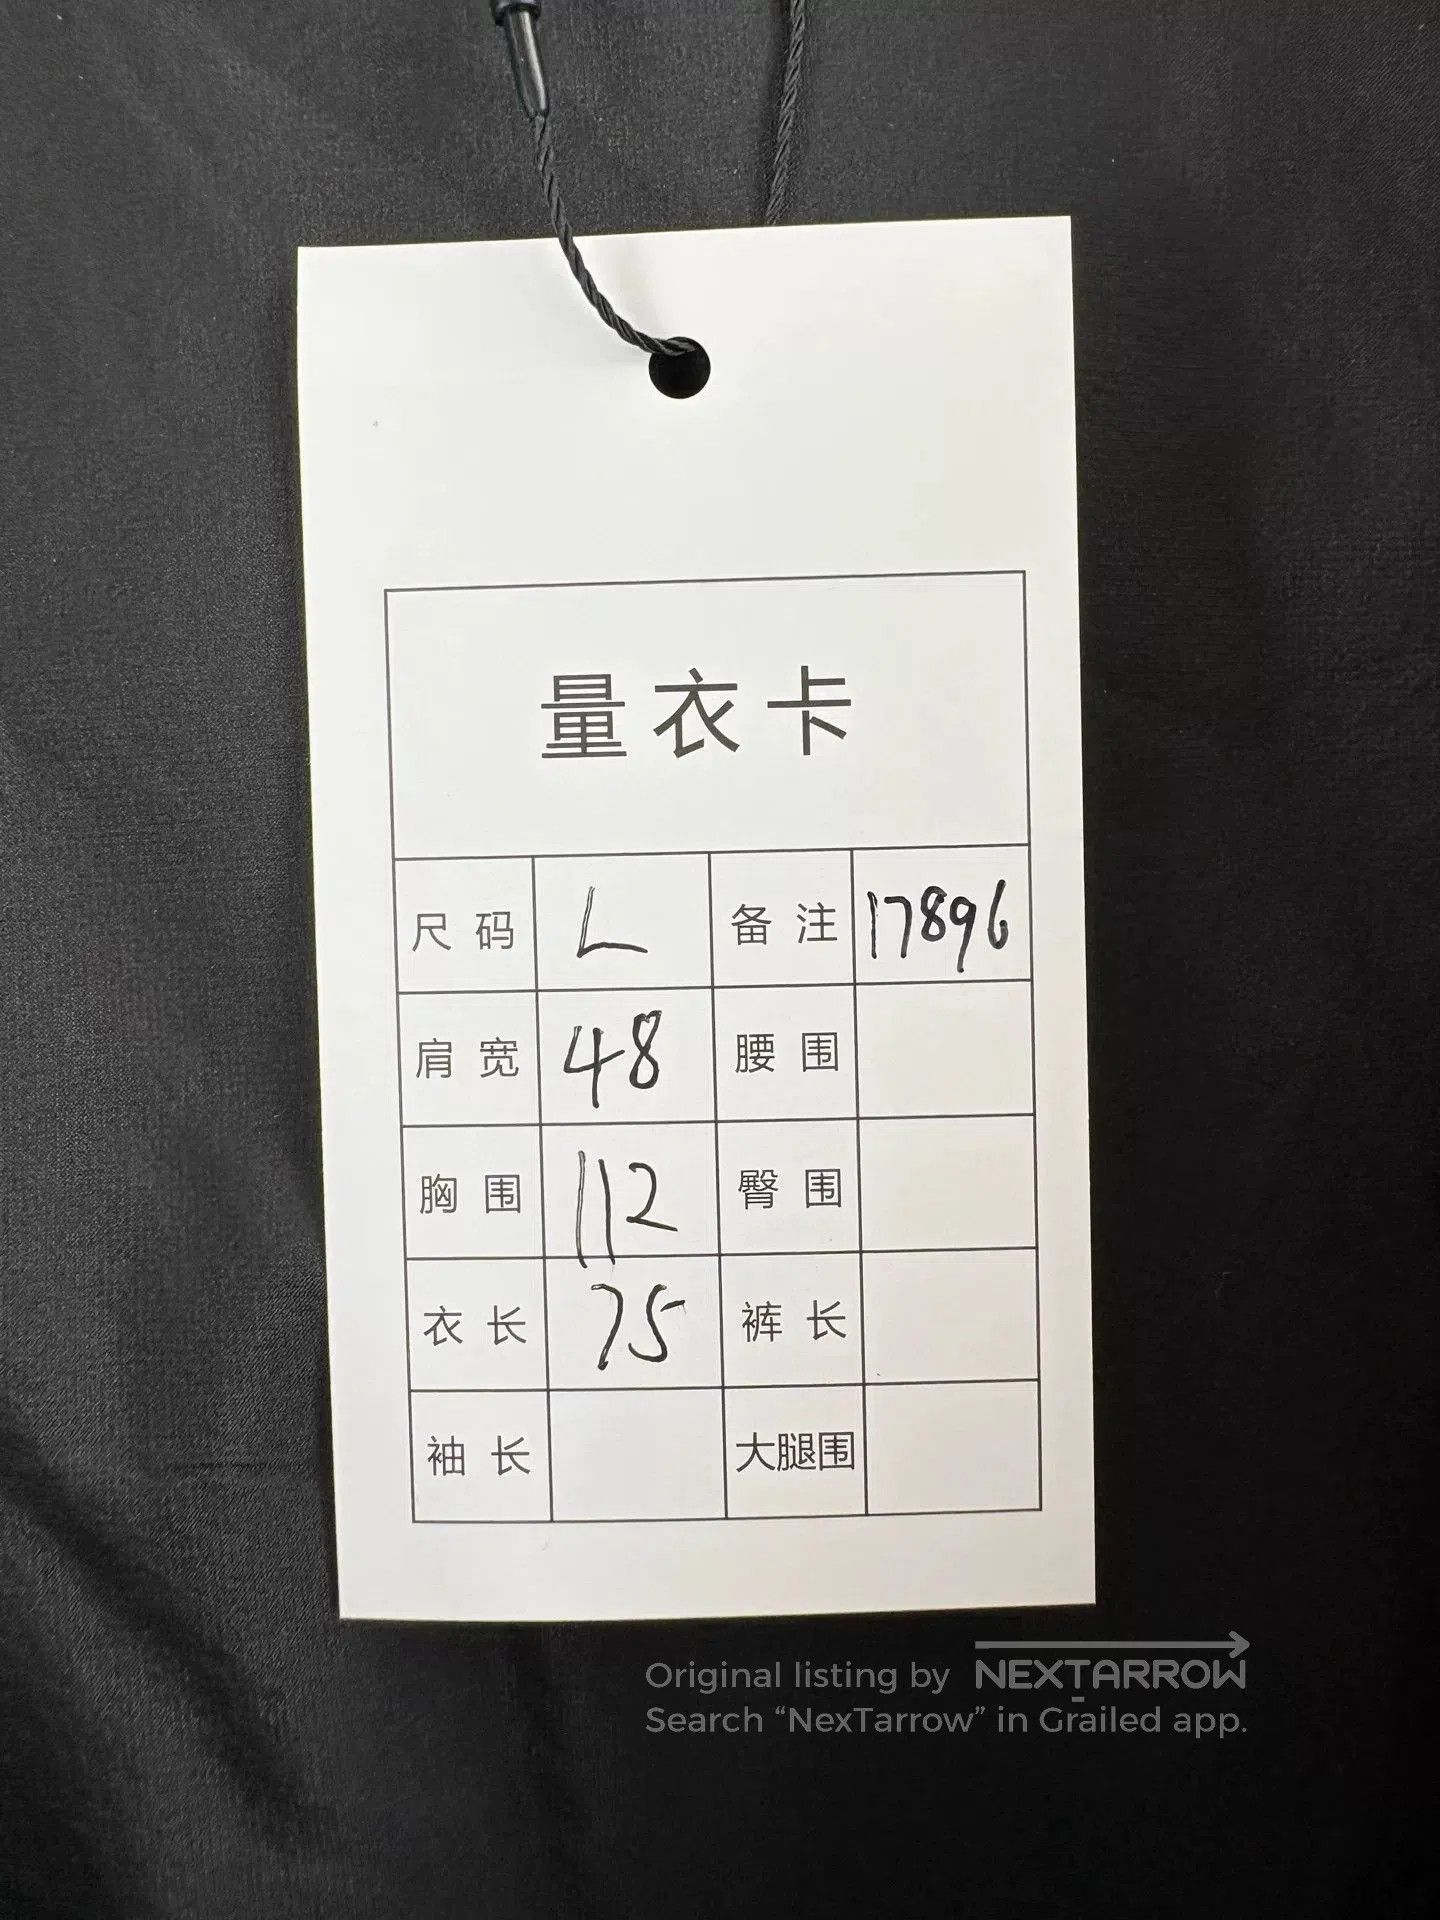 量衣卡
尺码 L 备注 17896
肩宽 48 腰围
胸围 112 臀围
衣长 75 裤长
袖长 大腿围
Original listing by NEXTARROW
Search “NexTarrow” in Grailed app.